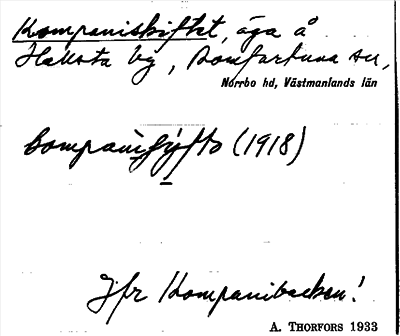 Kompaniskiftet, äga å
Hallsta by, Romfartuna sn,
Norrbo hd, Västmanlands län
kompanịi̯ǵifto (1918)
Jfr Kompanibacken!
A. Thorfors 1933